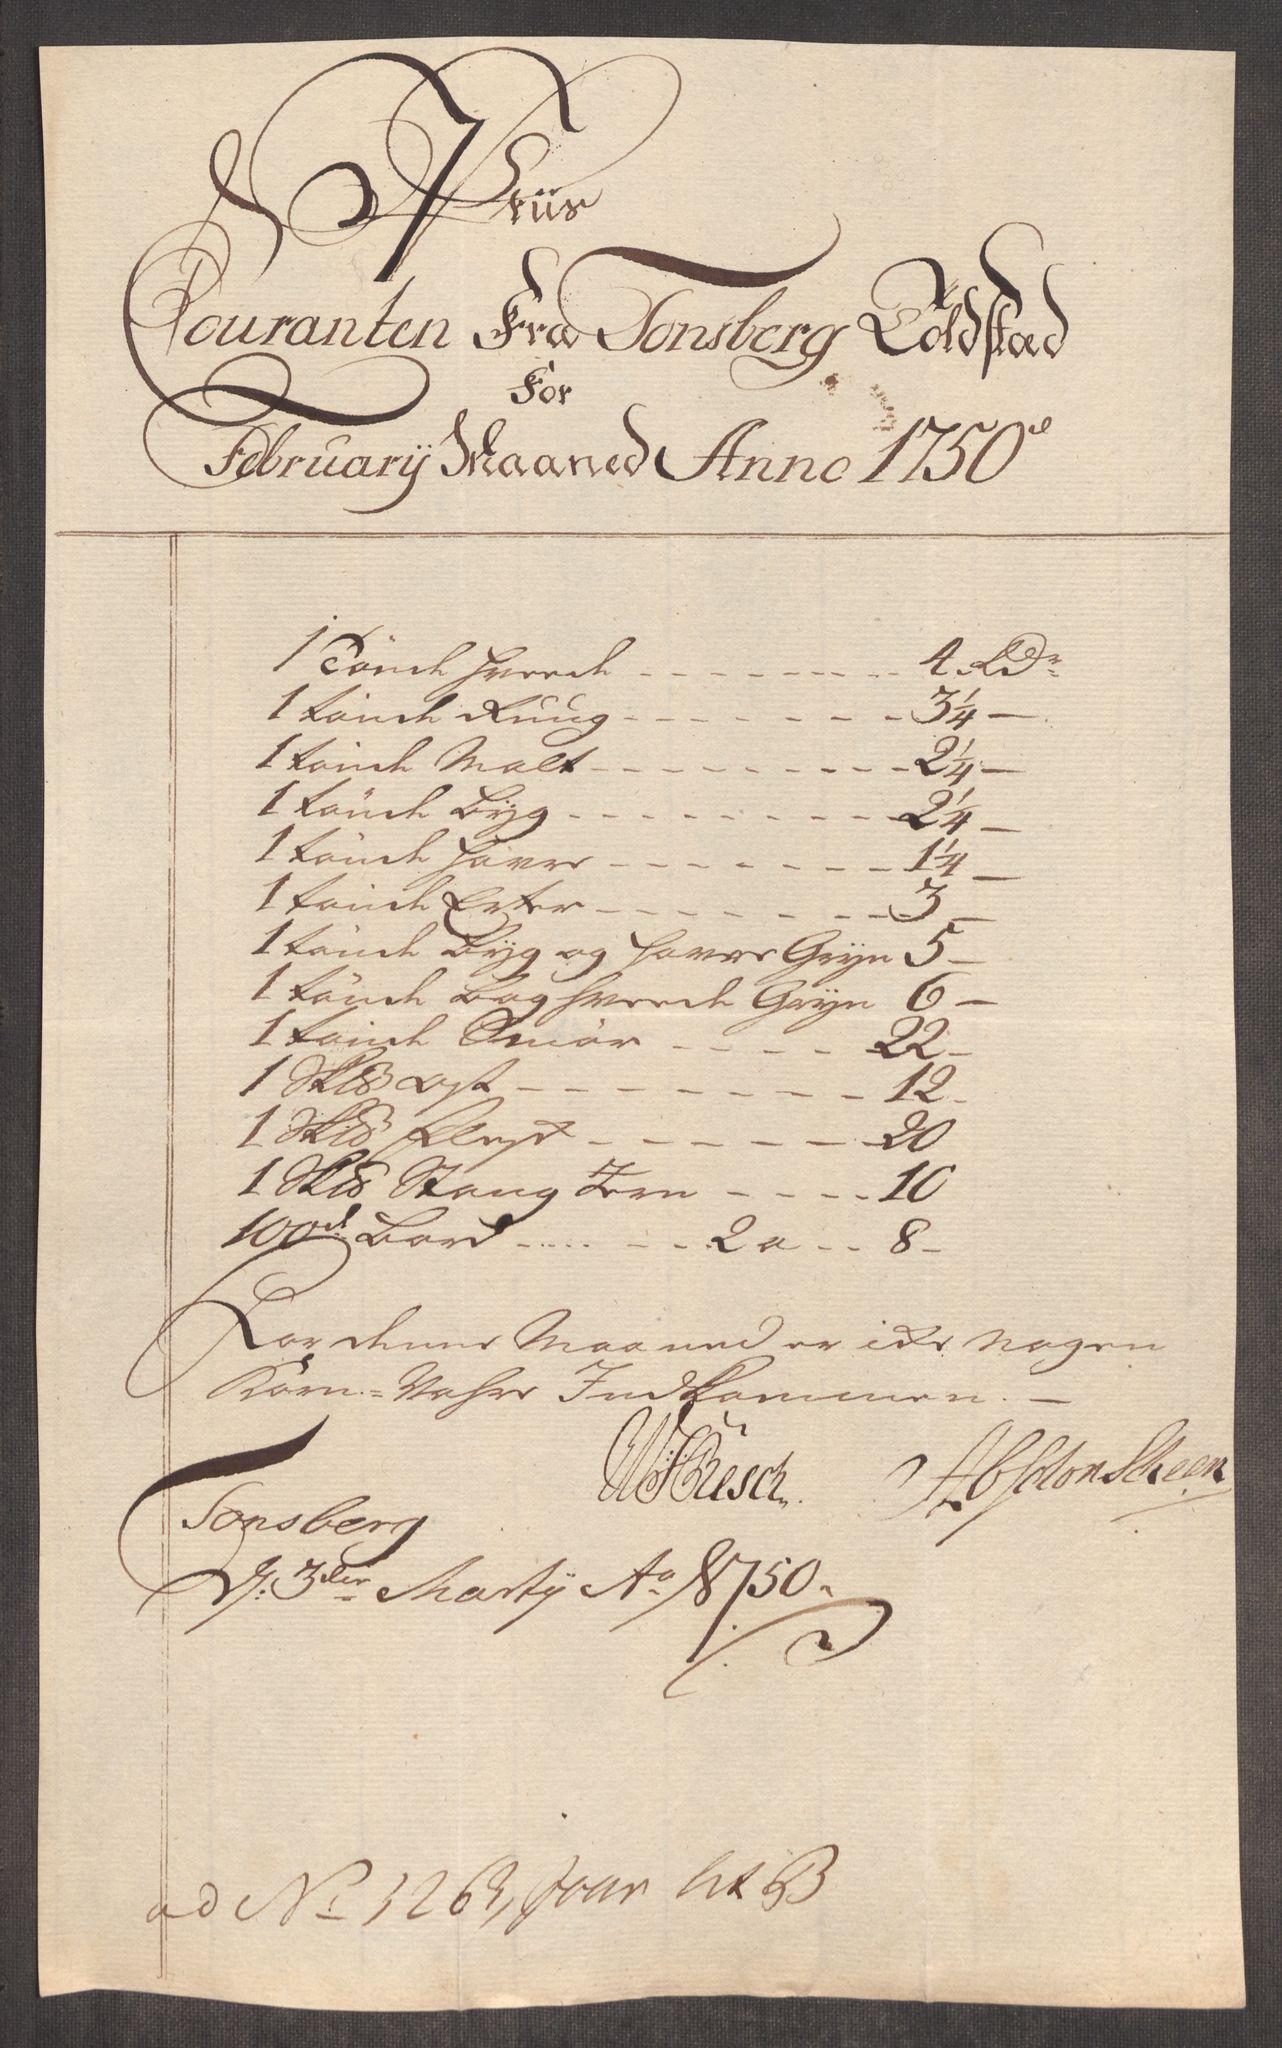 Priis
Couranten Fra Tonsberg Toldstæd
For
February Maaned Anno 1750
1 Tönde Hvede 4 RDr
1 tönde Ruug 3 1/4 —
1 tönde Malt 2 1/4 —
1 tönde Byg 2 1/4 —
1 tönde Havre 1 1/4 —
1 tönde Erter 3 —
1 tönde Byg og Havre Gryn 5 —
1 tönde Boghvede Gryn 6 —
1 tönde Smör 22 —
1 Sk℔ Ost 12 -
1 Sk℔ Flesk 20
1 Sk℔ Stang Jern 10
100d Bord 2 a 8 -
For denne Maaned er icke nogen
Korn-Vahre Indkommen. —
Büsch. Absolon Scheen
Tonsberg
d: 3die Martÿ Ao 1750.
ad No 3263, lit B